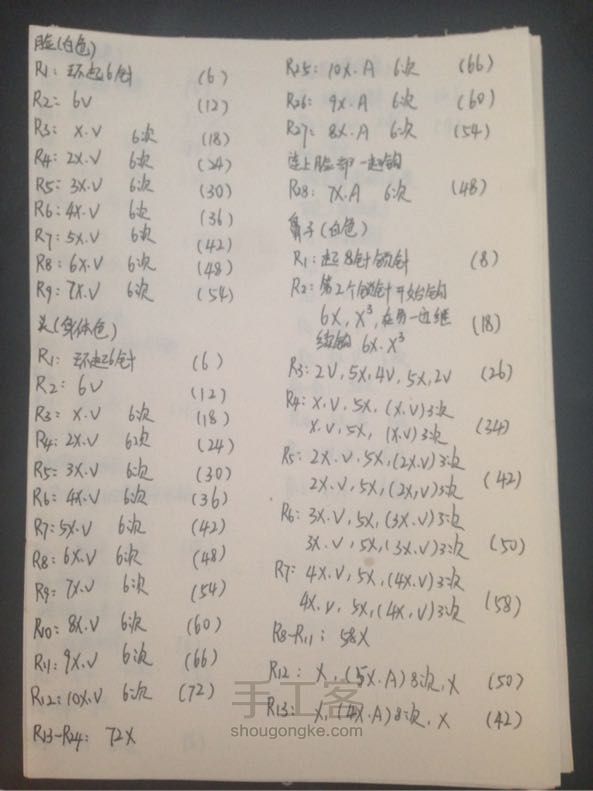 脸(白色)
R1: 环起6针 (6)
R2: 6V (12)
R3: X.V 6次 (18)
R4: 2X.V 6次 (24)
R5: 3X.V 6次 (30)
R6: 4X.V 6次 (36)
R7: 5X.V 6次 (42)
R8: 6X.V 6次 (48)
R9: 7X.V 6次 (54)
头(身体色)
R1: 环起6针 (6)
R2: 6V (12)
R3: X.V 6次 (18)
R4: 2X.V 6次 (24)
R5: 3X.V 6次 (30)
R6: 4X.V 6次 (36)
R7: 5X.V 6次 (42)
R8: 6X.V 6次 (48)
R9: 7X.V 6次 (54)
R10: 8X.V 6次 (60)
R11: 9X.V 6次 (66)
R12: 10X.V 6次 (72)
R13-R24: 72X
R25: 10X.A 6次 (66)
R26: 9X.A 6次 (60)
R27: 8X.A 6次 (54)
连上脸部一起钩
R28: 7X.A 6次 (48)
鼻子(白色)
R1: 起8针锁针 (8)
R2: 第2个锁针开始钩
6X, X³, 在另一边继
续钩 6X.X³ (18)
R3: 2V, 5X, 4V, 5X, 2V (26)
R4: X.V, 5X, (X.V)3次
X.V, 5X, (X.V)3次 (34)
R5: 2X.V, 5X, (2X.V)3次
2X.V, 5X, (2X,V)3次 (42)
R6: 3X.V, 5X, (3X.V)3次
3X.V, 5X, (3X.V)3次 (50)
R7: 4X.V, 5X, (4X.V)3次
4X.V, 5X, (4X,V)3次 (58)
R8-R11: 58X
R12: X, (5X.A)8次, X (50)
R13: X, (4X.A)8次, X (42)
手工客
shougongke.com